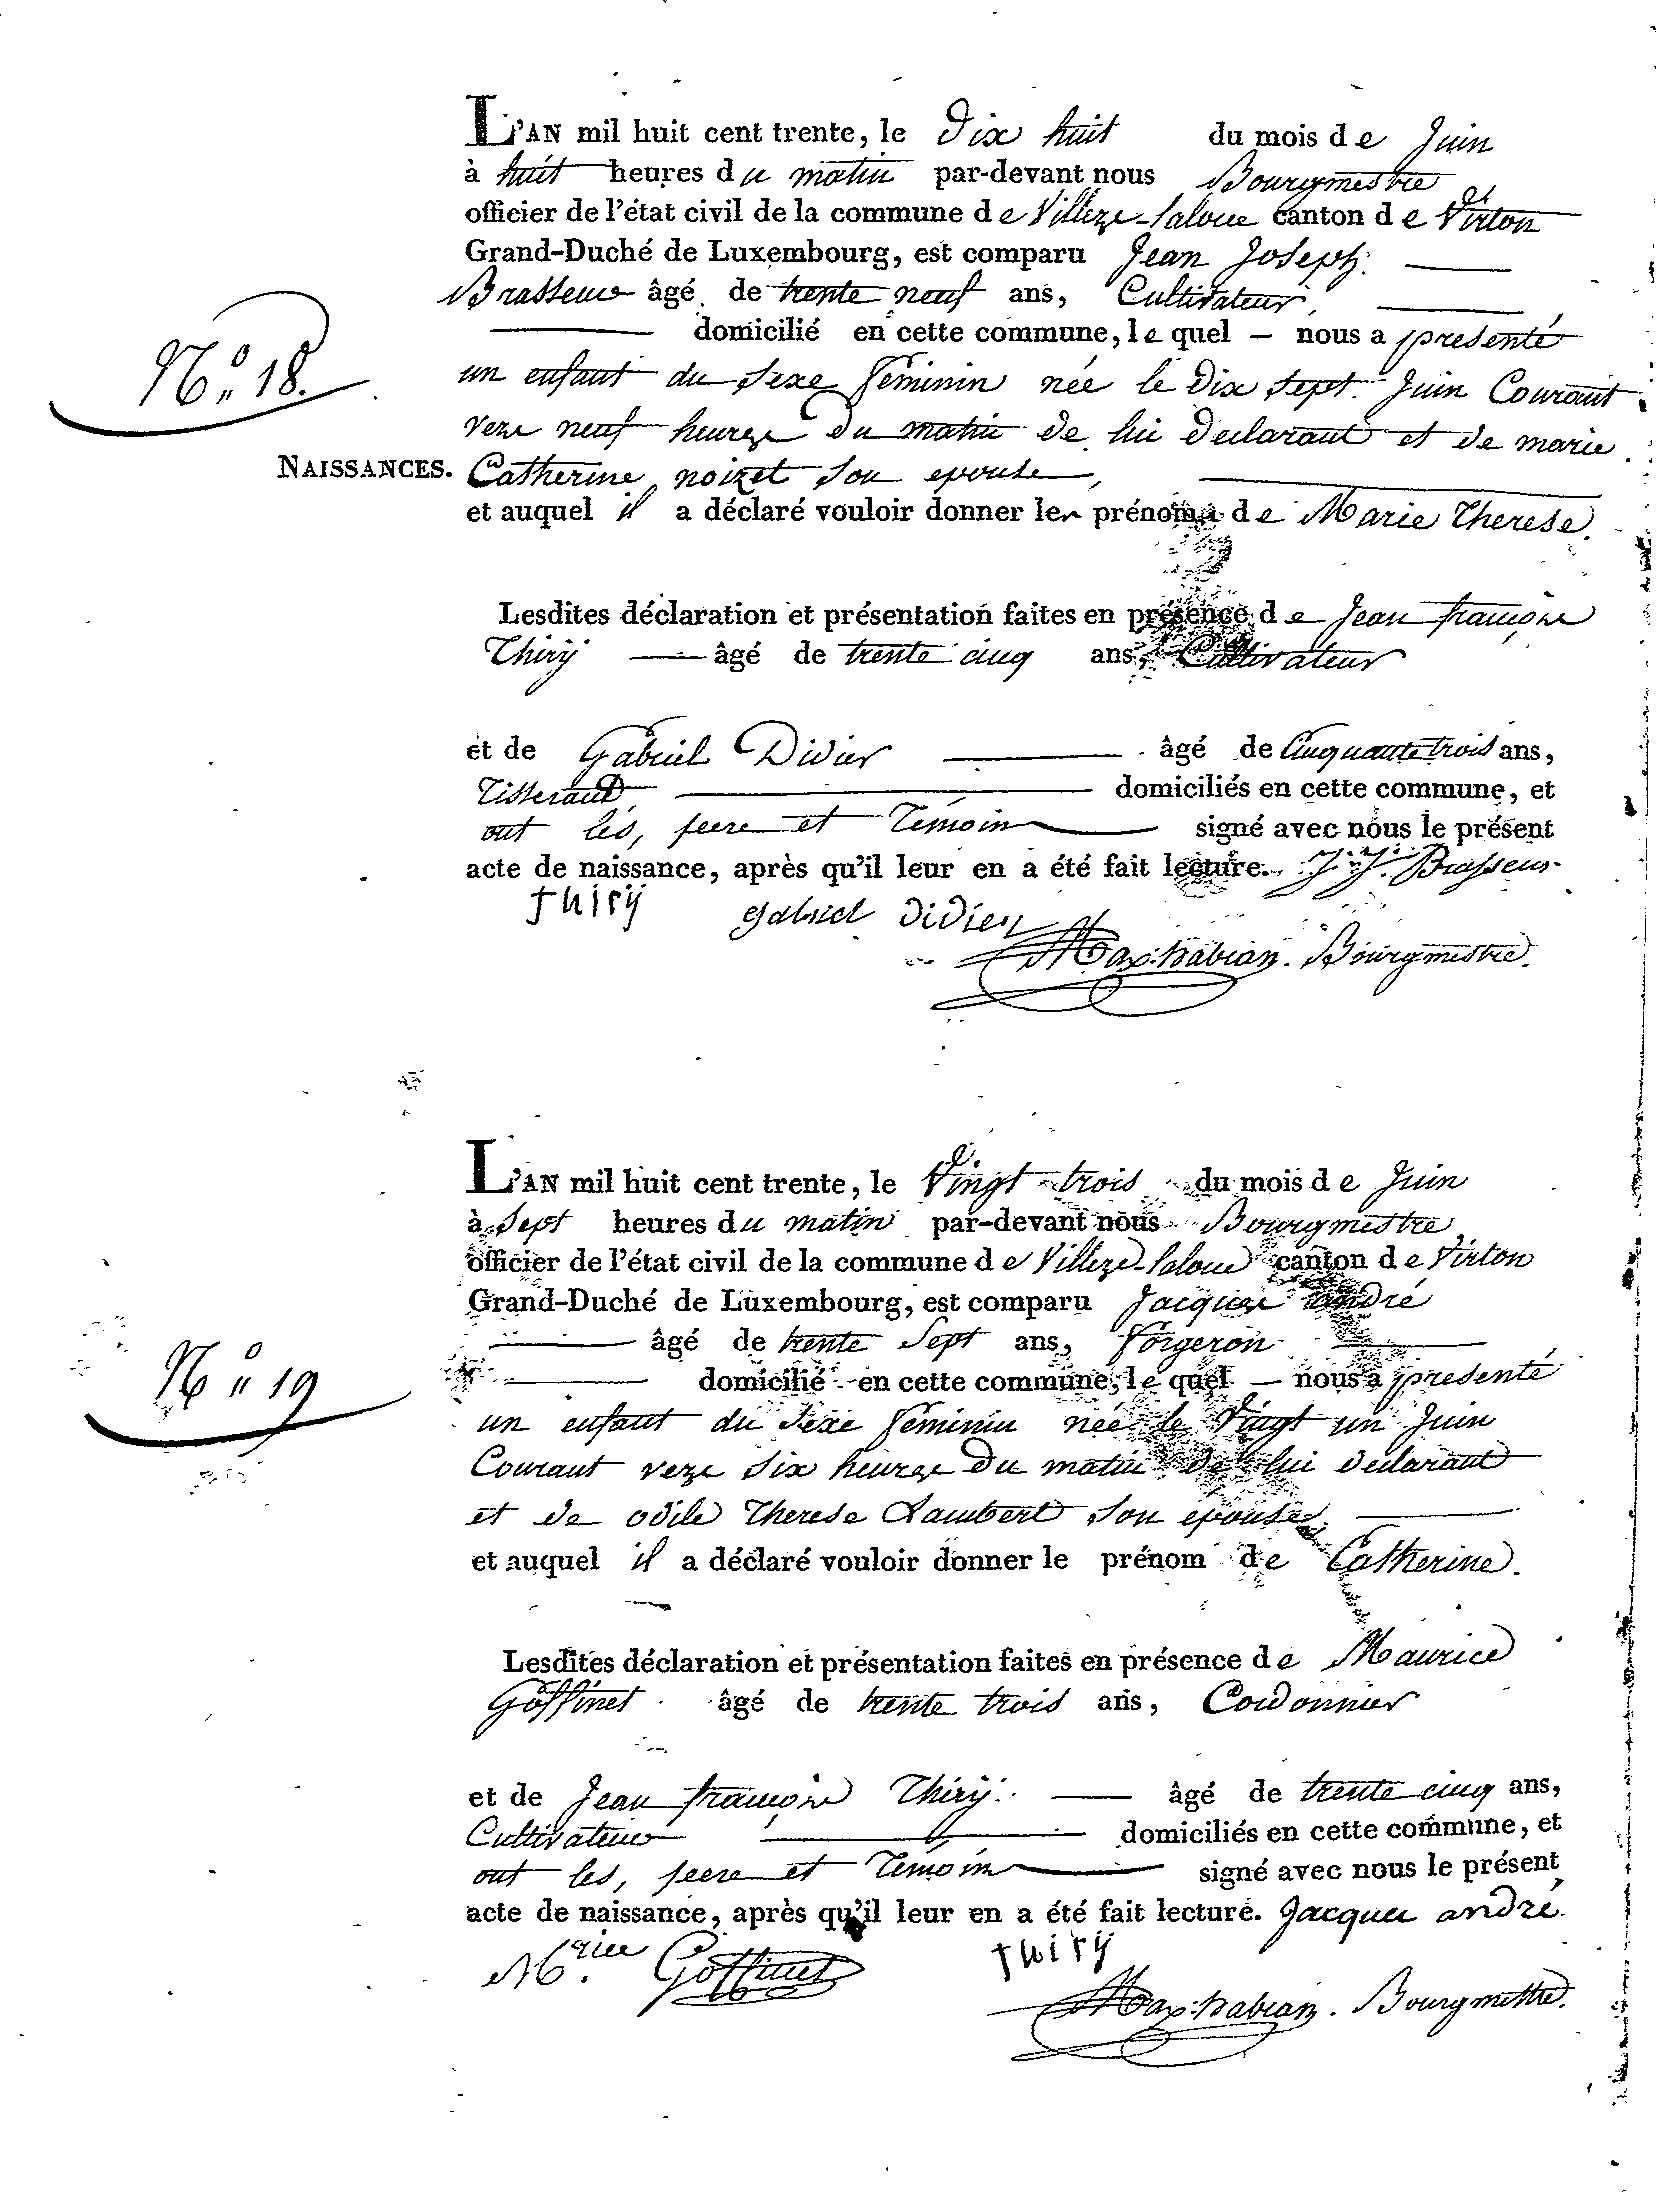 L'AN mil huit cent trente, le Dix huit du mois de Juin
à huit heures du matin par-devant nous Bourgmestre
officier de l'état civil de la commune de Villeze-laloue canton de Virton
Grand-Duché de Luxembourg, est comparu Jean Joseph
Brasseur âgé de trente neuf ans, Cultivateur,
domicilié en cette commune, le quel — nous a presenté
N° 18.
un enfant du Sexe féminin née le Dix Sept Juin Courant
verze neuf heurze Du matin de lui declarant et de marie
NAISSANCES. Catherine noizet Son epouse,
et auquel il a déclaré vouloir donner les prénoms de Marie Therese.
Lesdites déclaration et présentation faites en présence de Jean françoise
Thirÿ âgé de trente cinq ans, Cultivateur
et de Gabriel Didier âgé de Cinquante trois ans,
Tisserand domiciliés en cette commune, et
ont les, peere et Temoin signé avec nous le présent
acte de naissance, après qu'il leur en a été fait lecture. J. J. Brasseur
thirÿ gabriel Didier
Bourgmestre.
L'AN mil huit cent trente, le Vingt trois du mois de Juin
à Sept heures du matin par-devant nous Bourgmestre
officier de l'état civil de la commune de Villeze-laloue canton de Virton
Grand-Duché de Luxembourg, est comparu Jacques andré
âgé de trente Sept ans, Forgeron
N° 19
domicilié en cette commune, le quel — nous a presenté
un enfant du Sexe féminin née le Vingt un Juin
Courant verze Six heurze Du matin de lui declarant
et de odile Therese Lambert Son epouse,
et auquel il a déclaré vouloir donner le prénom de Catherine.
Lesdites déclaration et présentation faites en présence de Maurice
Goffinet âgé de trente trois ans, Cordonnier
et de Jean françoise Thirÿ. âgé de trente cinq ans,
Cultivateur domiciliés en cette commune, et
ont les, peere et Temoin signé avec nous le présent
acte de naissance, après qu'il leur en a été fait lecture. Jacques andré
Mrice Goffinet thirÿ
Bourgmestre.